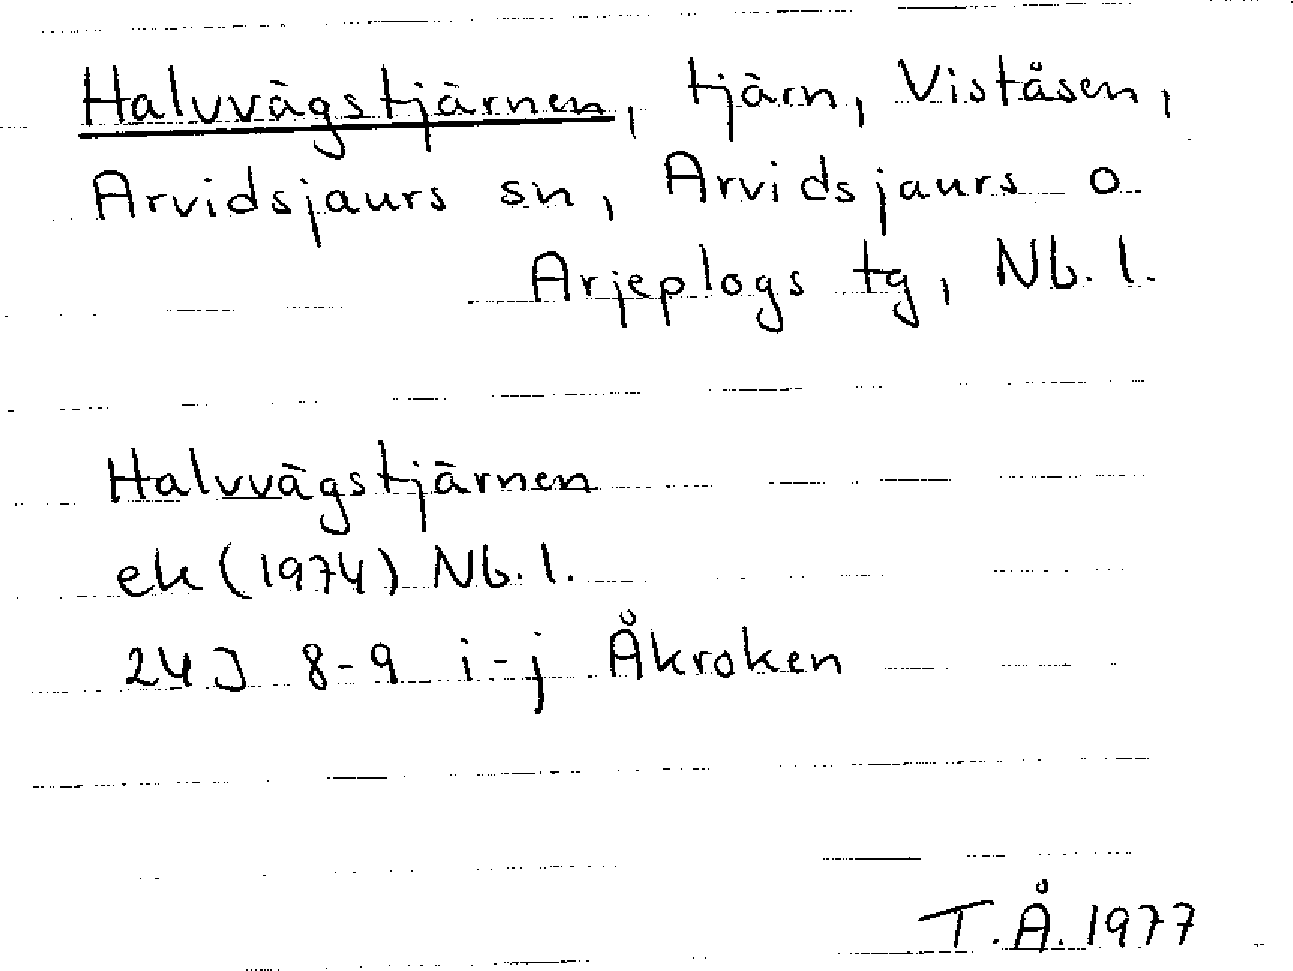 Halvvägstjärnen, tjärn, Viståsen,
Arvidsjaurs sn, Arvidsjaurs o
Arjeplogs tg, Nb. l.
Halvvägstjärnen
ek (1974) Nb. l.
24J 8-9 i-j Åkroken
T.Å. 1977